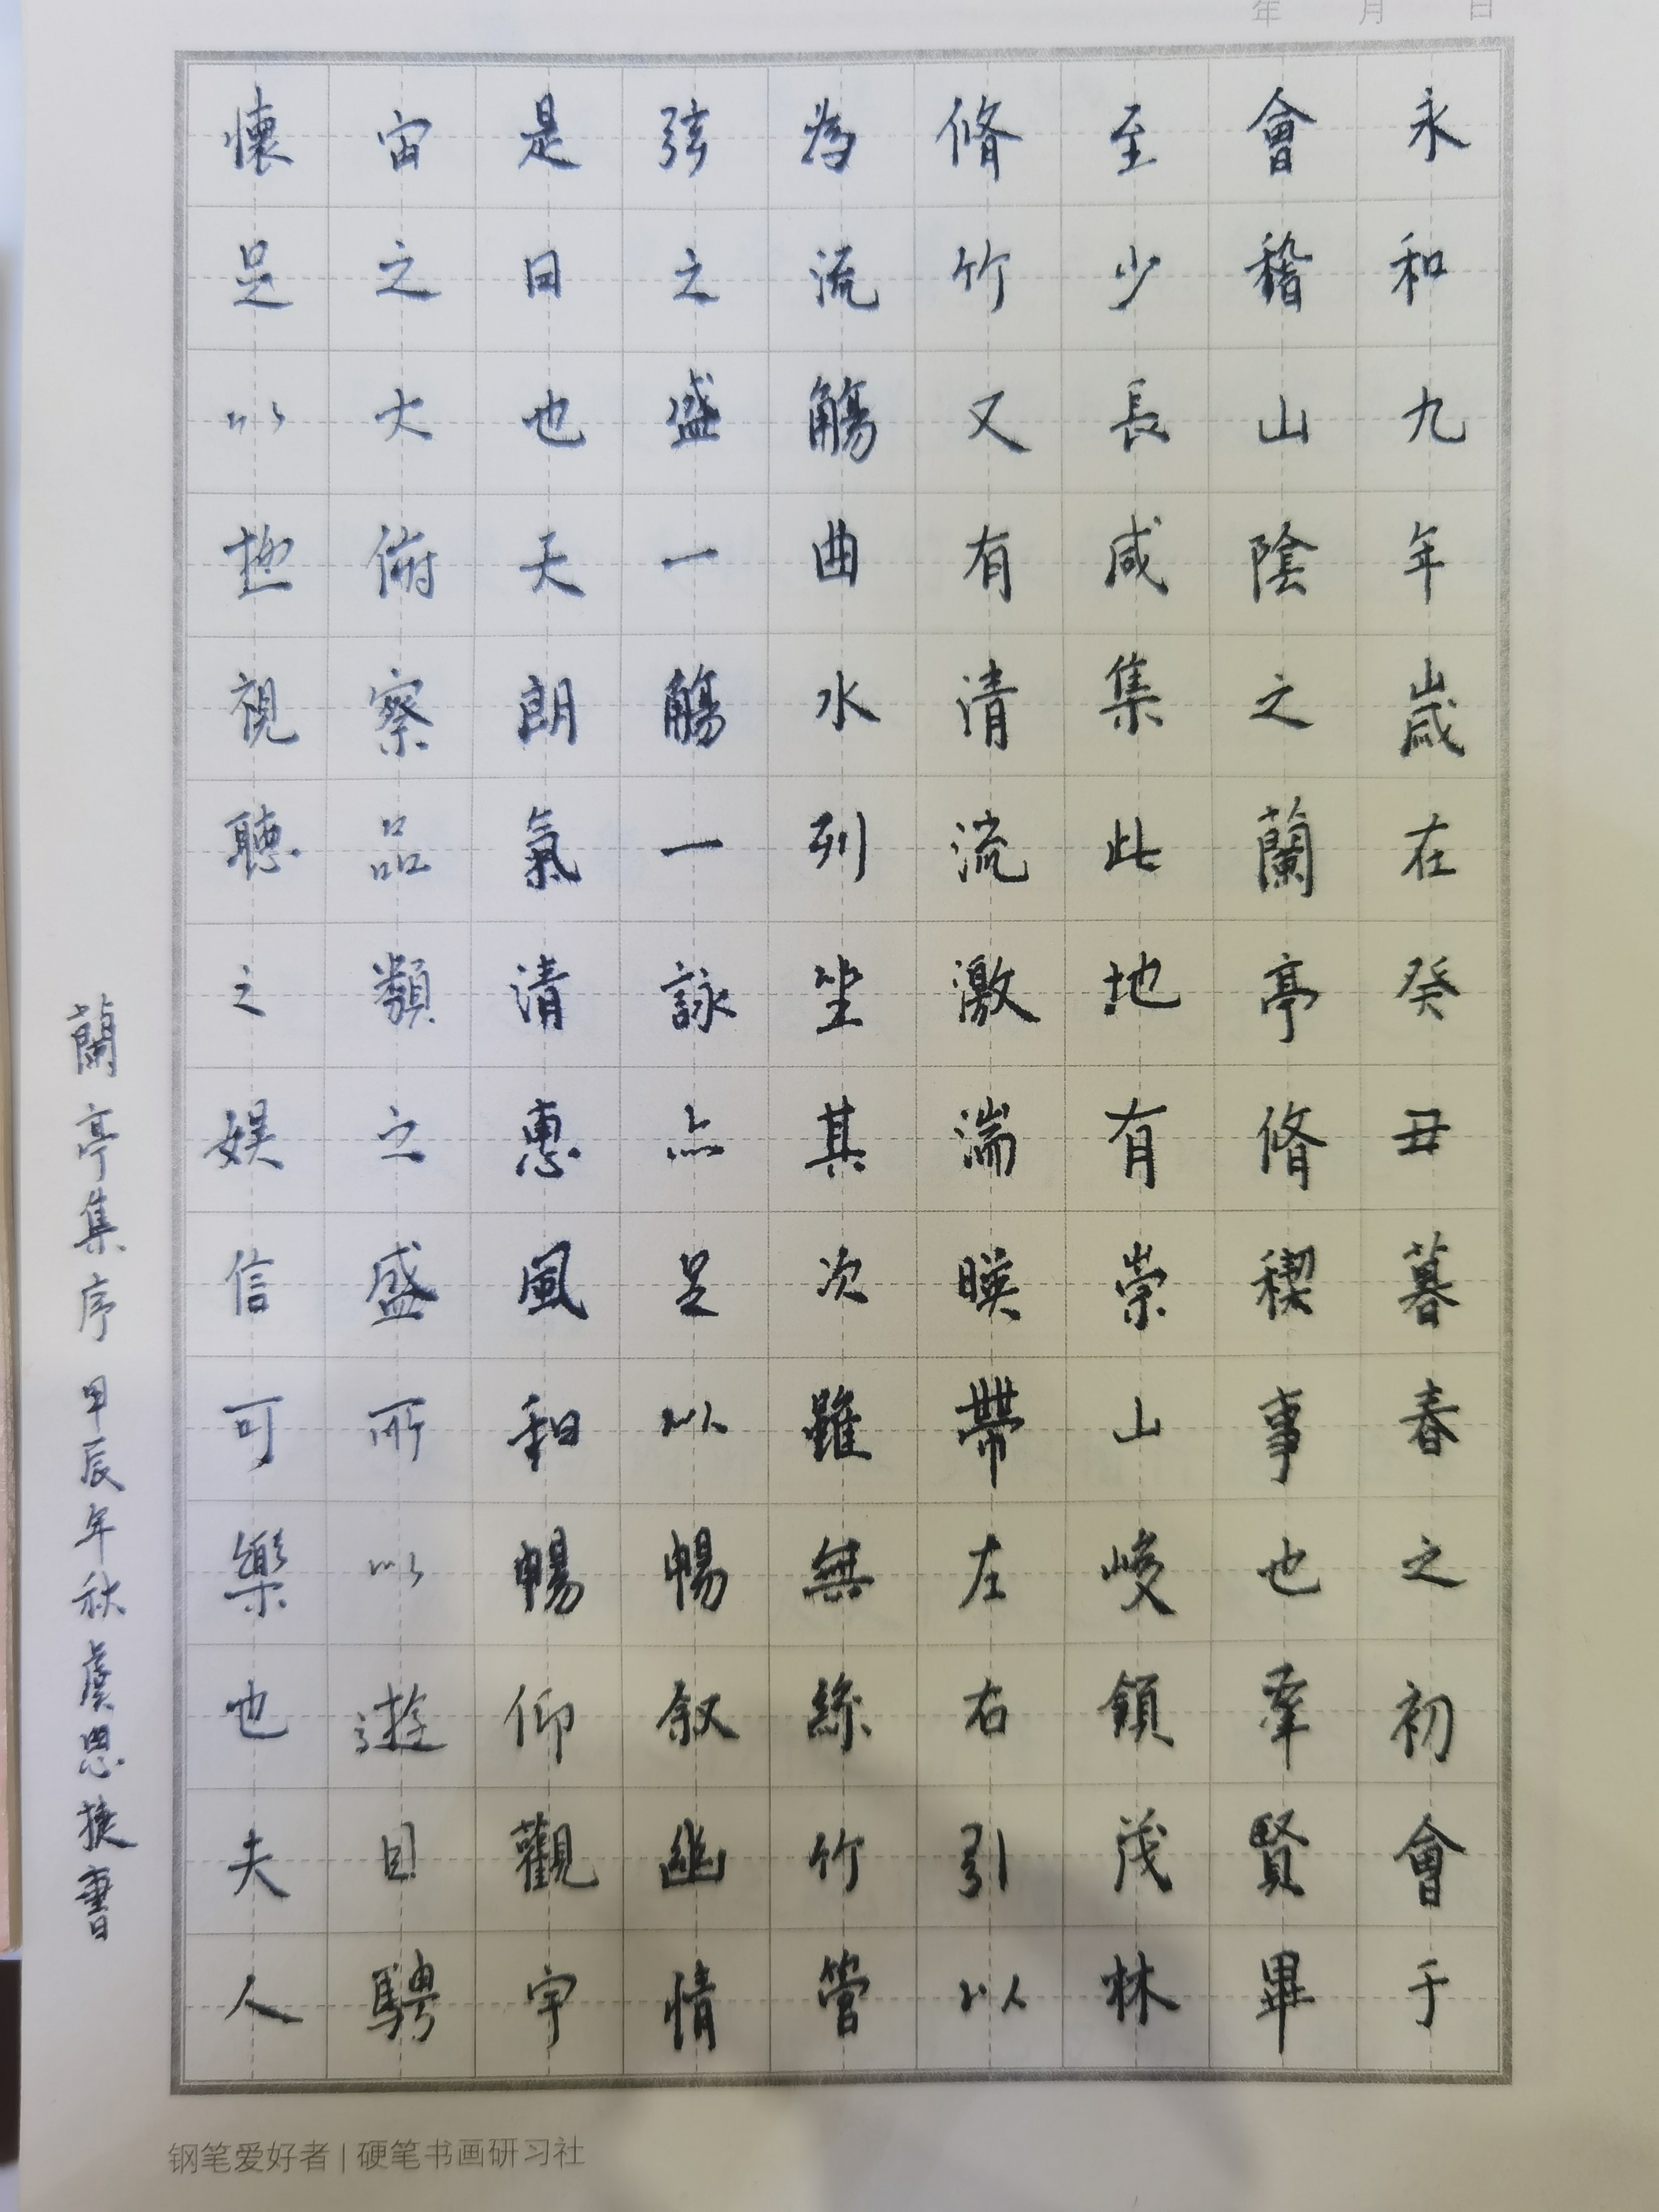 年 月 日
永和九年歲在癸丑暮春之初會于
會稽山陰之蘭亭脩稧事也羣賢畢
至少長咸集此地有崇山峻領茂林
脩竹又有清流激湍暎帶左右引以
為流觴曲水列坐其次雖無絲竹管
弦之盛一觴一詠亦足以暢叙幽情
是日也天朗氣清惠風和暢仰觀宇
宙之大俯察品類之盛所以遊目騁
懷足以極視聽之娛信可樂也夫人
蘭亭集序甲辰年秋虞思捷書
钢笔爱好者 | 硬笔书画研习社